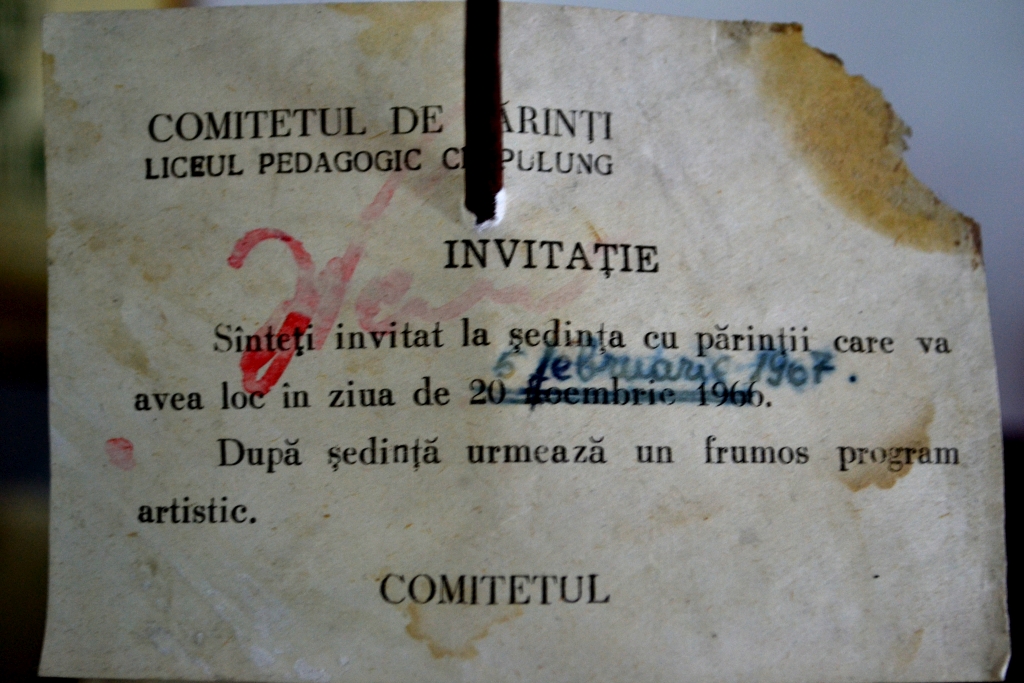 COMITETUL DE PĂRINȚI
LICEUL PEDAGOGIC CÎMPULUNG
INVITAȚIE
Sînteți invitat la ședința cu părinții care va
5 februarie 1967.
avea loc în ziua de 20 noembrie 1966.
După ședință urmează un frumos program
artistic.
COMITETUL